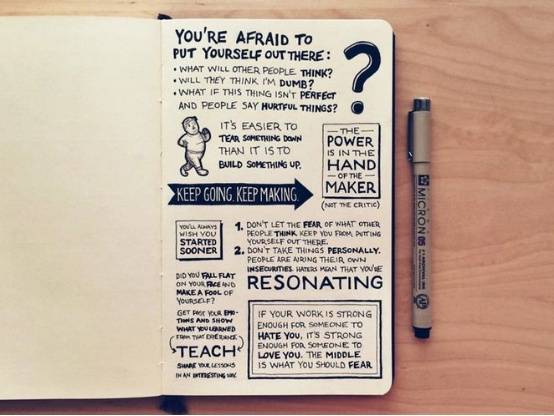 YOU'RE AFRAID TO
PUT YOURSELF OUT THERE:
• WHAT WILL OTHER PEOPLE THINK?
• WILL THEY THINK I'M DUMB?
• WHAT IF THIS THING ISN'T PERFECT
AND PEOPLE SAY HURTFUL THINGS?
?
IT'S EASIER TO
TEAR SOMETHING DOWN
THAN IT IS TO
BUILD SOMETHING UP.
THE
POWER
IS IN THE
HAND
OF THE
MAKER
(NOT THE CRITIC)
KEEP GOING. KEEP MAKING.
YOU'LL ALWAYS
WISH YOU
STARTED
SOONER
1. DON'T LET THE FEAR OF WHAT OTHER
PEOPLE THINK KEEP YOU FROM PUTTING
YOURSELF OUT THERE.
2. DON'T TAKE THINGS PERSONALLY.
PEOPLE ARE AIRING THEIR OWN
INSECURITIES. HATERS MEAN THAT YOU'RE
RESONATING
DID YOU FALL FLAT
ON YOUR FACE AND
MAKE A FOOL OF
YOURSELF?
GET PAST YOUR EMO-
TIONS AND SHOW
WHAT YOU LEARNED
(FROM THAT EXPERIENCE)
TEACH
SHARE YOUR LESSONS
IN AN INTERESTING WAY.
IF YOUR WORK IS STRONG
ENOUGH FOR SOMEONE TO
HATE YOU, IT'S STRONG
ENOUGH FOR SOMEONE TO
LOVE YOU. THE MIDDLE
IS WHAT YOU SHOULD FEAR
MICRON 05